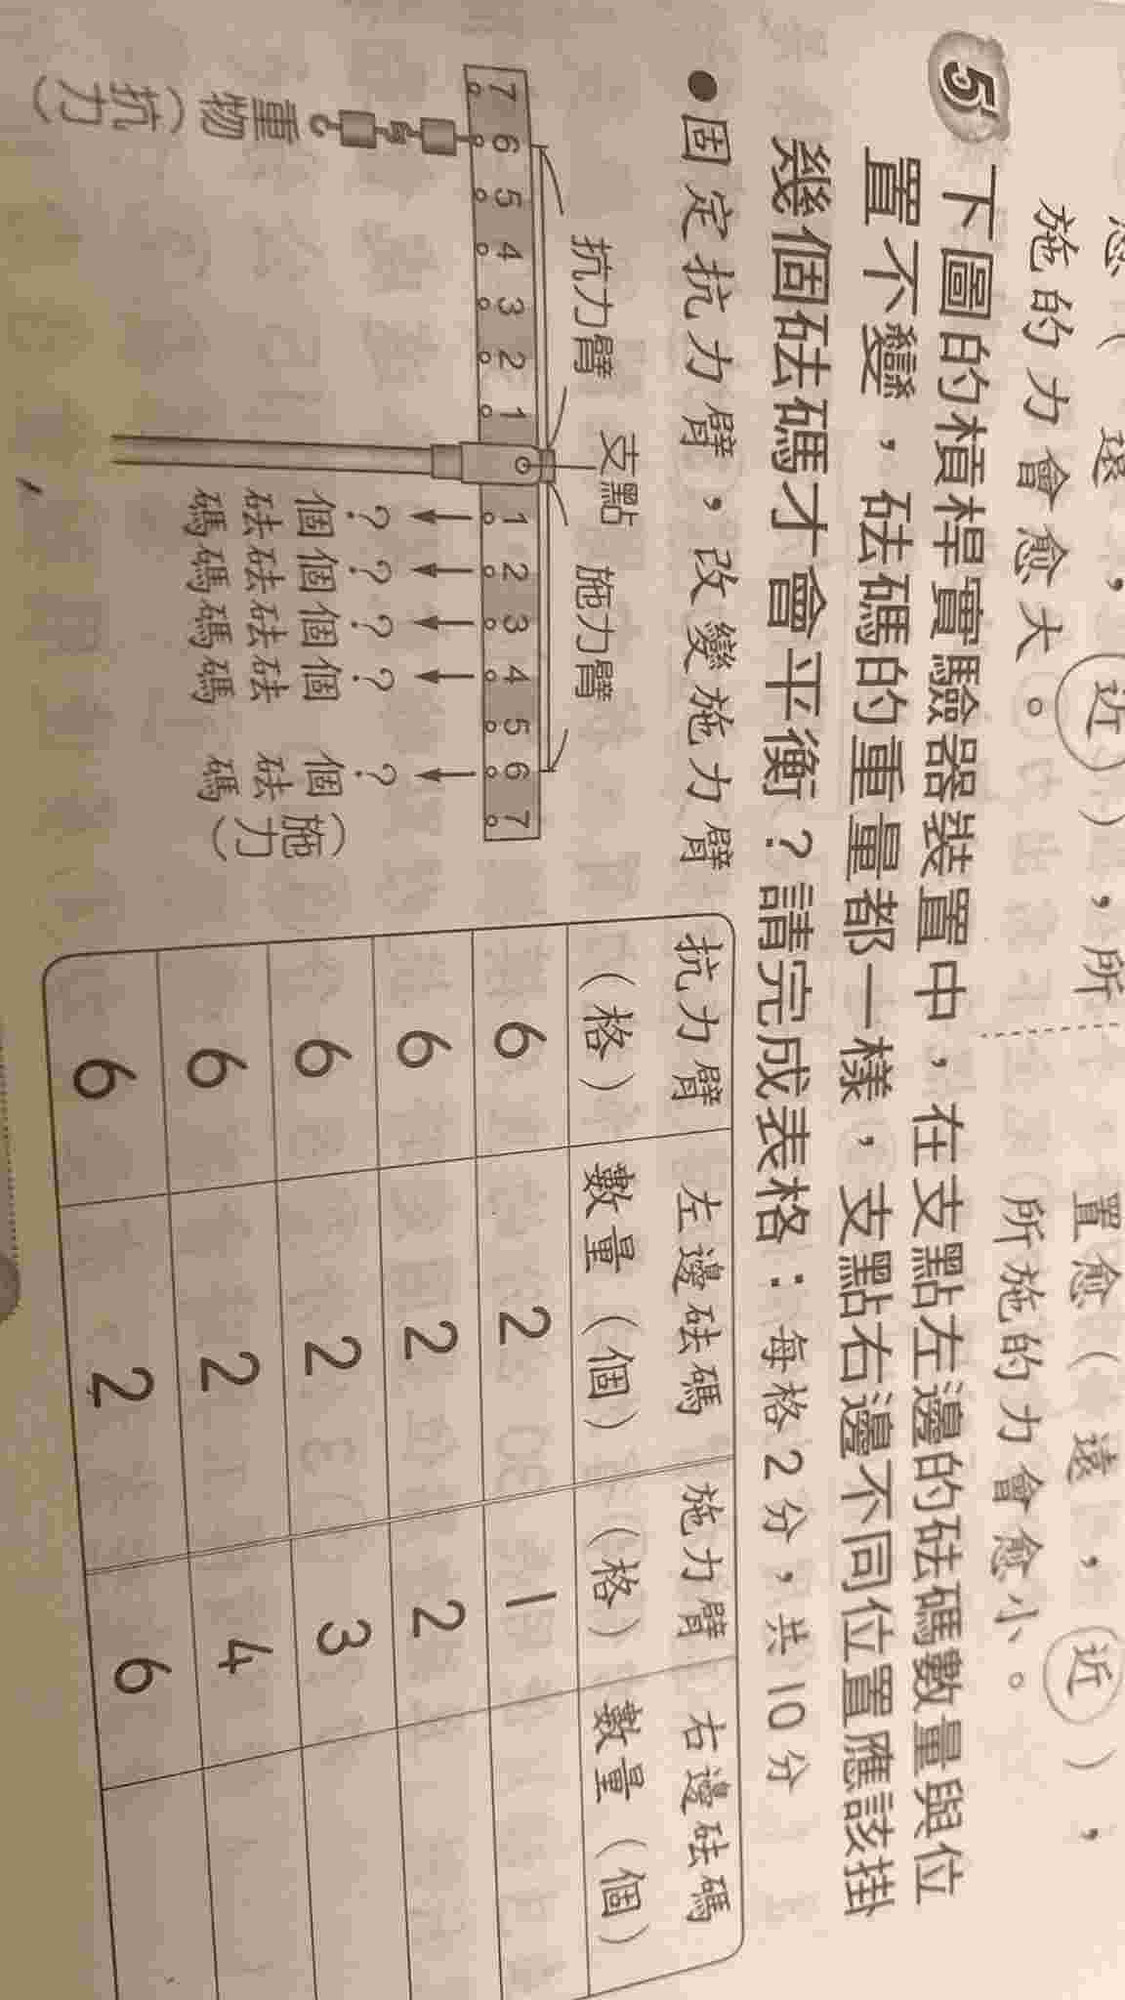 （遠，近），所
施的力會愈大。
置愈（遠，近），
所施的力會愈小。
5 下圖的槓桿實驗器裝置中，在支點左邊的砝碼數量與位
置不變，砝碼的重量都一樣，支點右邊不同位置應該掛
幾個砝碼才會平衡？請完成表格：每格2分，共10分
●固定抗力臂，改變施力臂
抗力臂 支點 施力臂
7 6 5 4 3 2 1 1 2 3 4 5 6 7
重物（抗力）
？個砝碼 ？個砝碼 ？個砝碼 ？個砝碼 ？個砝碼（施力）
抗力臂（格） 左邊砝碼數量（個） 施力臂（格） 右邊砝碼數量（個）
6 2 1
6 2 2
6 2 3
6 2 4
6 2 6